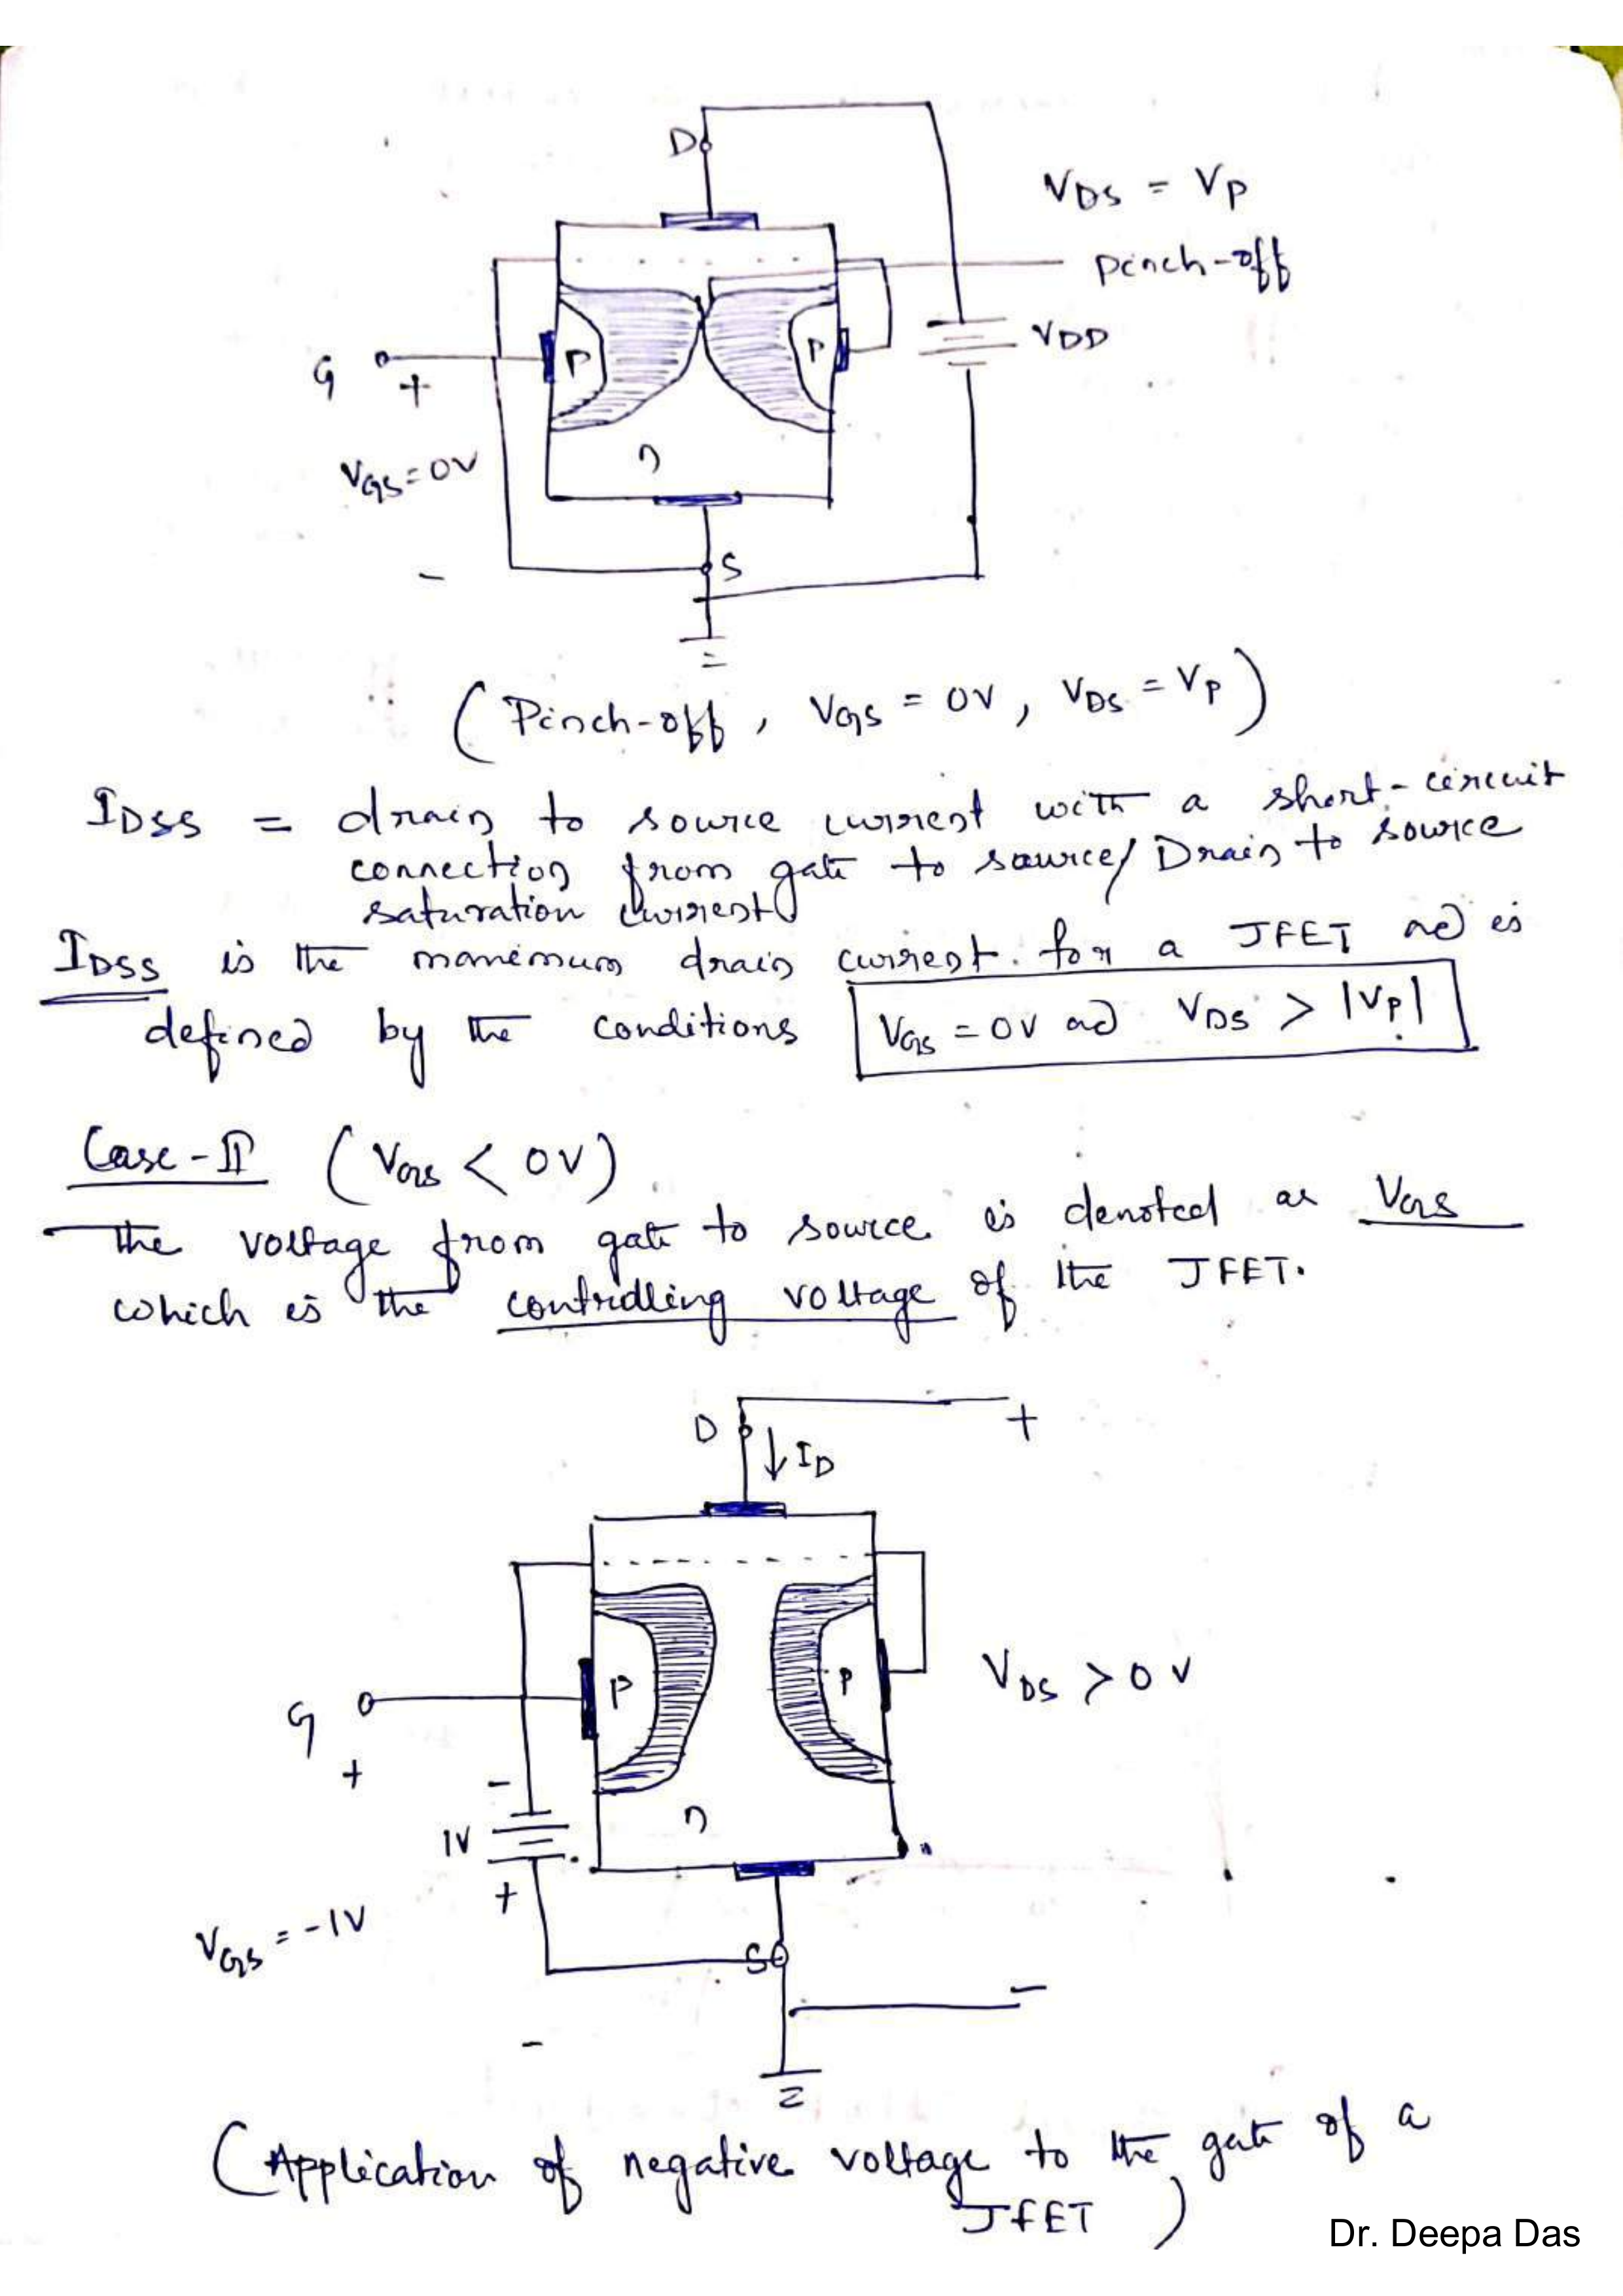 D
V_DS = V_P
pinch-off
V_DD
P
P
G
+
V_GS = 0V
n
-
S
(Pinch-off, V_GS = 0V, V_DS = V_P)
I_DSS = drain to source current with a short-circuit
connection from gate to source/ Drain to source
saturation current
I_DSS is the maximum drain current for a JFET and is
defined by the conditions V_GS = 0V and V_DS > |V_P|
Case-II (V_GS < 0V)
The voltage from gate to source is denoted as V_GS
which is the controlling voltage of the JFET.
D
+
I_D
P
P
V_DS > 0 V
G
+
-
1V
n
+
V_GS = -1V
S
-
-
(Application of negative voltage to the gate of a
JFET)
Dr. Deepa Das